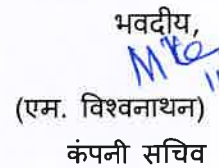 भवदीय,
(एम. विश्वनाथन)
कंपनी सचिव